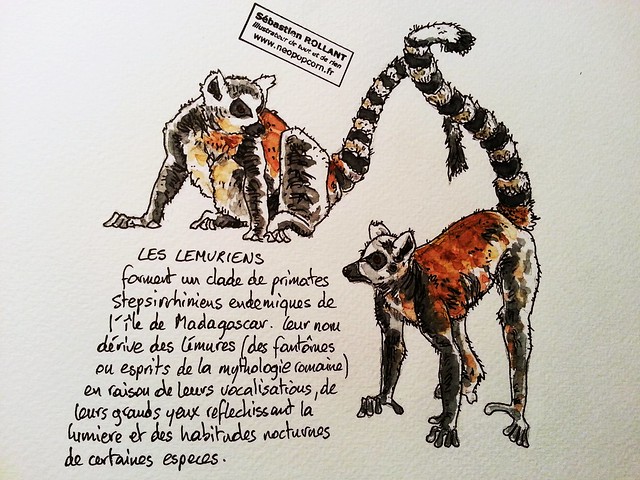 Sébastien ROLLANT
Illustrateur de tout et de rien
www.neopopcorn.fr
LES LEMURIENS
forment un clade de primates
Stepsirrhiniens endemiques de
l'île de Madagascar. Leur nom
dérive des Lémures (des fantômes
ou esprits de la mythologie romaine)
en raison de leurs vocalisations, de
leurs grands yeux reflechissant la
lumiere et des habitudes nocturnes
de certaines especes.